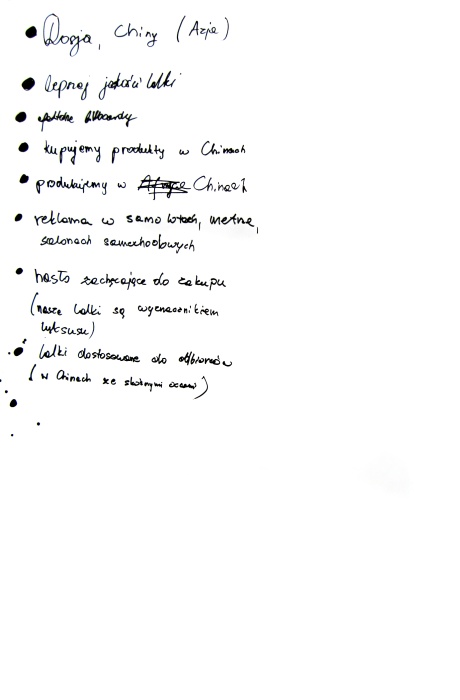 Rosja, Chiny (Azja)
lepszej jakości lalki
billboardy
kupujemy produkty w Chinach
produkujemy w Chinach
reklama w samolotach, metrze,
salonach samochodowych
hasło zachęcające do zakupu
(nasze lalki są wyznacznikiem
luksusu)
lalki dostosowane do odbiorców
(w Chinach ze skośnymi oczami)